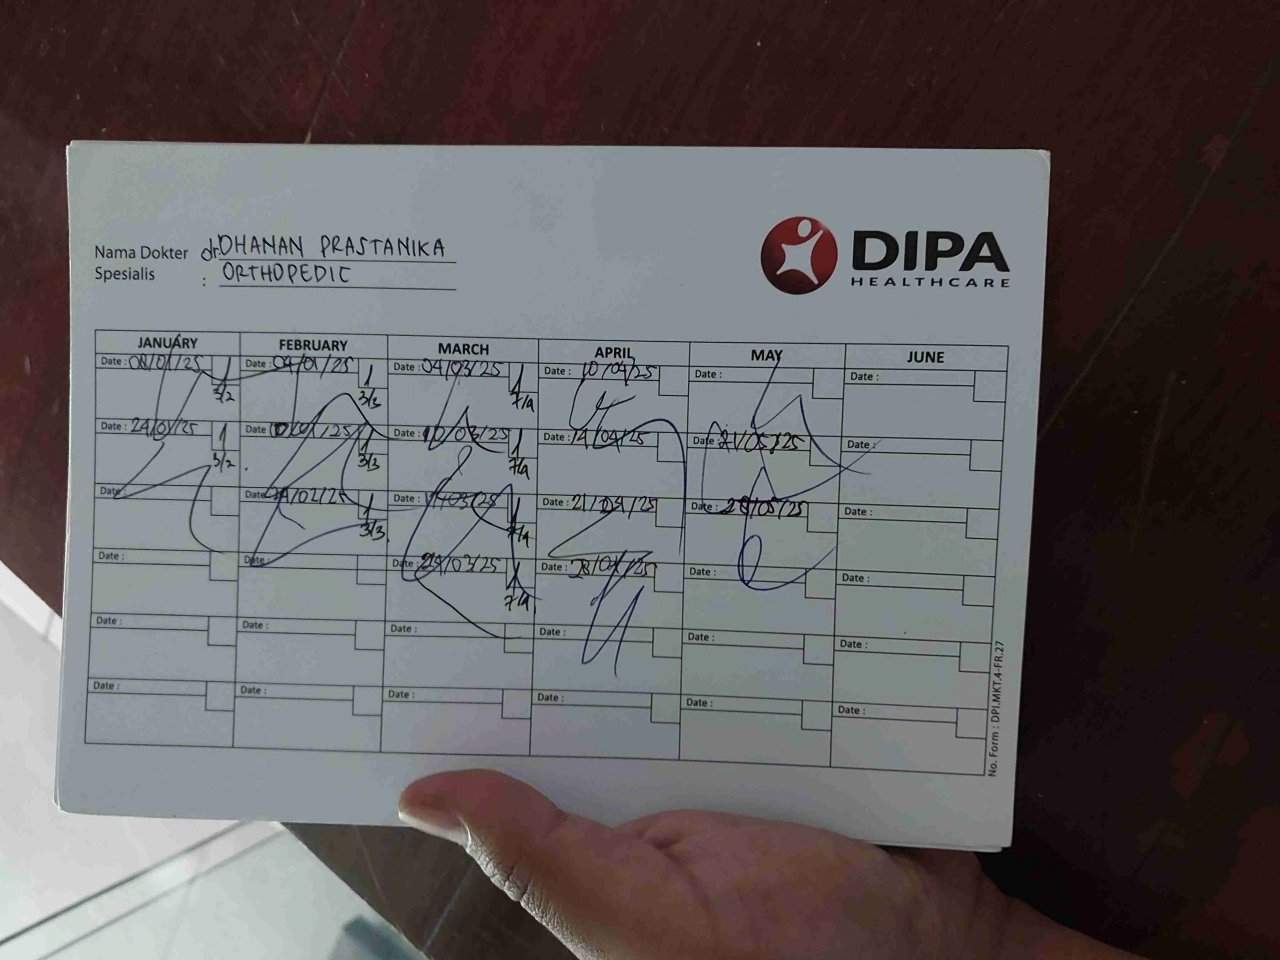 Nama Dokter dr. DHANAN PRASTANIKA
Spesialis : ORTHOPEDIC
DIPA
HEALTHCARE
JANUARY FEBRUARY MARCH APRIL MAY JUNE
Date : 08/01/25 Date : 04/01/25 Date : 04/03/25 Date : 10/04/25 Date : Date :
3/2 3/3 7/4
Date : 24/01/25 Date : Date : 10/03/25 Date : 14/04/25 Date : 21/05/25 Date :
3/2 3/3 7/4
Date : Date : Date : Date : 21/04/25 Date : 28/05/25 Date :
3/3 7/4
Date : Date : Date : 24/03/25 Date : 28/04/25 Date : Date :
7/4
Date : Date : Date : Date : Date : Date :
Date : Date : Date : Date : Date : Date :
No. Form : DPI.MKT.4-FR.27